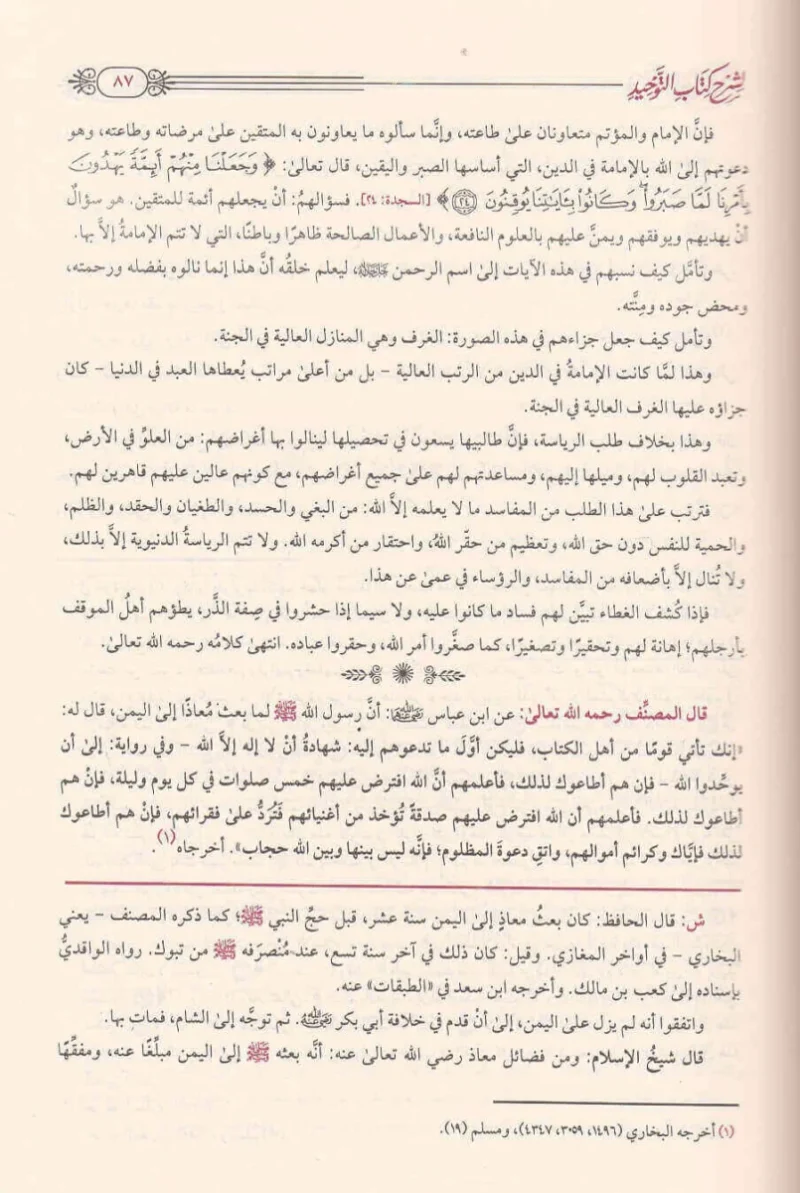 لشرح كتاب التوحيد
٨٧
فإنَّ الإمام والمؤتم متعاونان علىٰ طاعته، وإنَّما سألوه ما يعاونون به المتقين علىٰ مرضاته وطاعته، وهو
دعوتهم إلىٰ الله بالإمامة في الدين، التي أساسها الصبر واليقين، قال تعالىٰ: ﴿ وَجَعَلْنَا مِنْهُمْ أَئِمَّةً يَهْدُونَ
بِأَمْرِنَا لَمَّا صَبَرُواْ وَكَانُواْ بِـَٔايَٰتِنَا يُوقِنُونَ ۝٢٤ ﴾ [السجدة: ٢٤]. فسؤالهمُ: أنْ يجعلهم أئمة للمتقين. هو سؤالُ
أنْ يهديهم ويوفقهم ويمنَّ عليهم بالعلوم النافعة، والأعمال الصالحة ظاهرًا وباطنًا، التي لا تتم الإمامةُ إلاَّ بها.
وتأمَّل كيف نسبهم في هذه الآيات إلىٰ اسم الرحمن ﷻ، ليعلم خلقُه أنَّ هذا إنما نالوه بفضله ورحمته،
ومحض جوده ومِنَّته.
وتأمل كيف جعل جزاءهم في هذه الصورة: الغرف وهي المنازل العالية في الجنة.
وهذا لمَّا كانت الإمامةُ في الدين من الرتب العالية – بل من أعلىٰ مراتب يُعطاها العبد في الدنيا – كان
جزاؤه عليها الغرف العالية في الجنة.
وهذا بخلاف طلب الرياسة، فإنَّ طالبيها يسعون في تحصيلها لينالوا بها أغراضهم: من العلوِّ في الأرض،
وتعبد القلوب لهم، وميلها إليهم، ومساعدتهم لهم علىٰ جميع أغراضهم، مع كونهم عالين عليهم قاهرين لهم.
فترتب علىٰ هذا الطلب من المفاسد ما لا يعلمه إلاَّ الله: من البغي والحسد، والطغيان والحقد، والظلم،
والحمية للنفس دون حق الله، وتعظيم من حقَّر اللهُ، واحتقار من أكرمه الله. ولا تتم الرياسةُ الدنيوية إلاَّ بذلك،
ولا تُنال إلاَّ بأضعافه من المفاسد، والرؤساء في عمىٰ عن هذا.
فإذا كُشف الغطاء تبيَّن لهم فساد ما كانوا عليه، ولا سيما إذا حشروا في صِفة الذَّر، يطؤهم أهلُ الموقف
بأرجلهم؛ إهانة لهم وتحقيرًا وتصغيرًا، كما صغَّروا أمر الله، وحقروا عباده. انتهىٰ كلامُه رحمه الله تعالىٰ.
قال المصنِّف رحمه الله تعالىٰ: عن ابن عباس رضي الله عنهما: أنَّ رسول الله ﷺ لما بعث مُعاذًا إلىٰ اليمن، قال له:
«إنك تأتي قومًا من أهل الكتاب، فليكن أوَّلَ ما تدعوهم إليه: شهادةُ أنْ لا إله إلاَّ الله – وفي رواية: إلىٰ أن
يوحِّدوا الله – فإن هم أطاعوك لذلك، فأعلمهم أنَّ الله افترض عليهم خمس صلوات في كل يوم وليلة، فإنْ هم
أطاعوك لذلك. فأعلمهم أن الله افترض عليهم صدقةً تُؤخذ من أغنيائهم فَتُرَدُّ علىٰ فقرائهم، فإنْ هم أطاعوك
لذلك فإيَّاك وكرائم أموالهم، واتقِ دعوةَ المظلوم؛ فإنَّه ليس بينها وبين الله حجاب». أخرجاه(١).
ش: قال الحافظ: كان بعثُ معاذٍ إلىٰ اليمن سنة عشر، قبل حجِّ النبي ﷺ؛ كما ذكره المصنف – يعني
البخاري – في أواخر المغازي. وقيل: كان ذلك في آخر سنة تسع، عند مُنْصَرَفه ﷺ من تبوك. رواه الواقديُّ
بإسناده إلىٰ كعب بن مالك. وأخرجه ابن سعد في «الطبقات» عنه.
واتفقوا أنه لم يزل علىٰ اليمن، إلىٰ أنْ قدم في خلافة أبي بكر رضي الله عنه. ثم توجَّه إلىٰ الشام، فمات بها.
قال شيخُ الإسلام: ومن فضائل معاذ رضي الله تعالىٰ عنه: أنَّه بعثه ﷺ إلىٰ اليمن مبلِّغًا عنه، ومفقِّهًا
(١) أخرجه البخاري (١٤٩٦، ٣٠٥٩، ٤٣٤٧)، ومسلم (١٩).